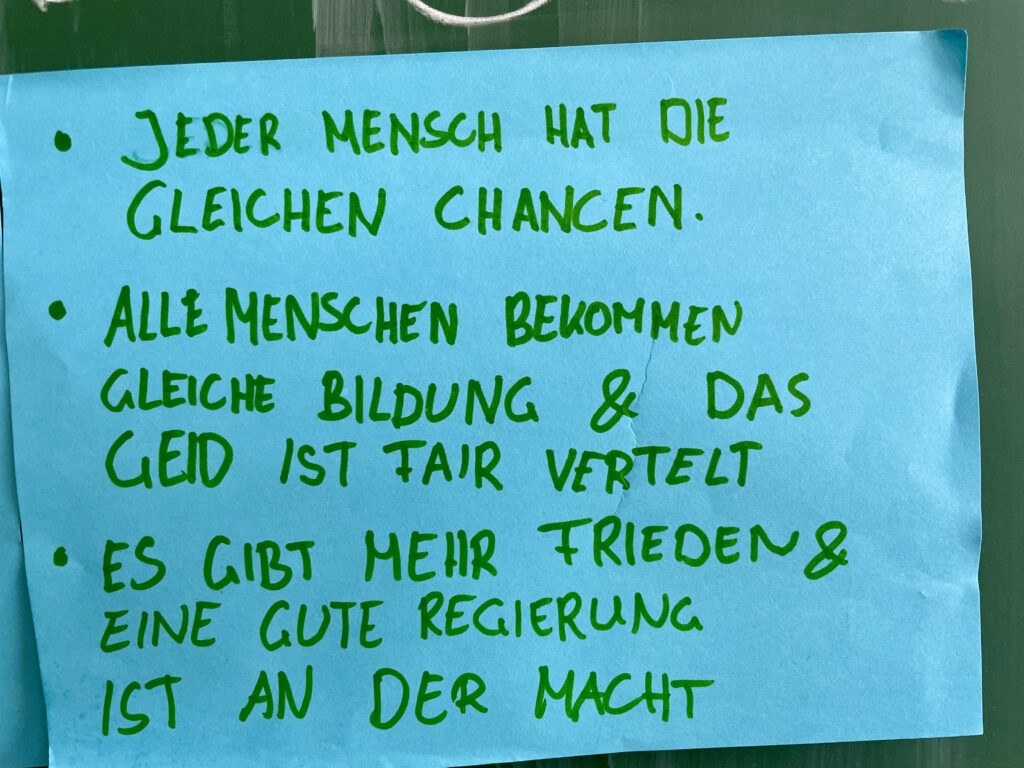 • JEDER MENSCH HAT DIE
GLEICHEN CHANCEN.
• ALLE MENSCHEN BEKOMMEN
GLEICHE BILDUNG & DAS
GELD IST FAIR VERTELT
• ES GIBT MEHR FRIEDEN &
EINE GUTE REGIERUNG
IST AN DER MACHT